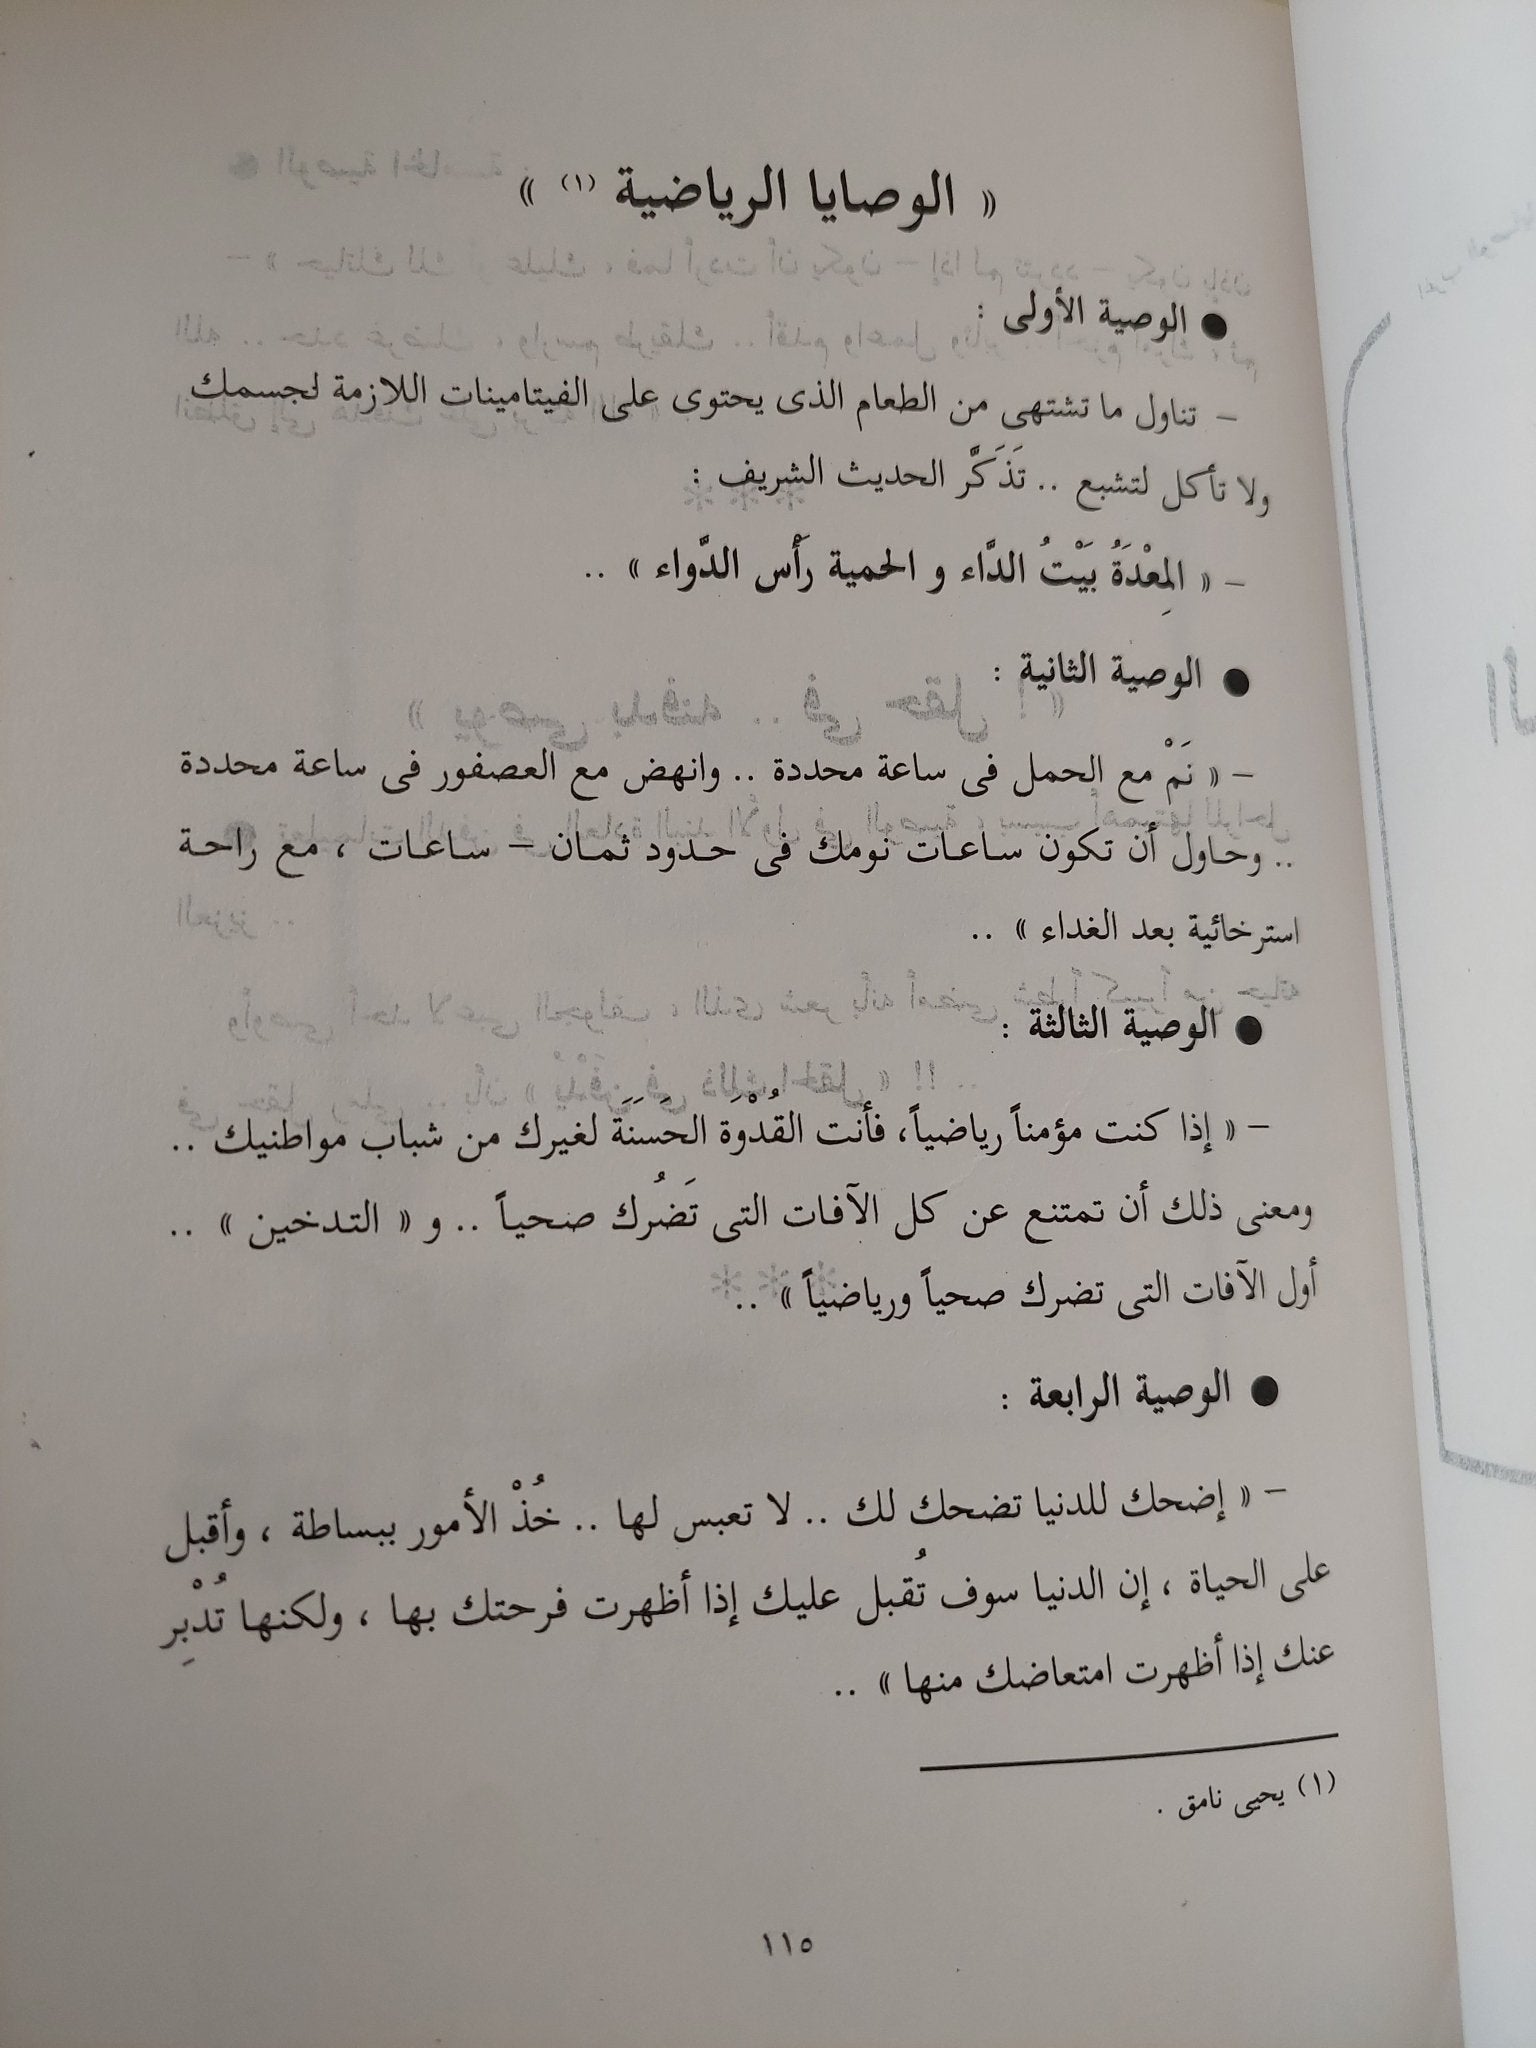 « الوصايا الرياضية (١) »
● الوصية الأولى :
– تناول ما تشتهى من الطعام الذى يحتوى على الفيتامينات اللازمة لجسمك
ولا تأكل لتشبع .. تَذَكَّر الحديث الشريف :
– « المِعْدَةُ بَيْتُ الدَّاء و الحمية رَأْس الدَّواء » ..
● الوصية الثانية :
– « نَمْ مع الحمل فى ساعة محددة .. وانهض مع العصفور فى ساعة محددة
.. وحاول أن تكون ساعات نومك فى حدود ثمان – ساعات ، مع راحة
استرخائية بعد الغداء » ..
● الوصية الثالثة :
– « إذا كنت مؤمناً رياضياً، فأنت القُدْوَة الحَسَنَةَ لغيرك من شباب مواطنيك ..
ومعنى ذلك أن تمتنع عن كل الآفات التى تَضُرك صحياً .. و « التدخين » ..
أول الآفات التى تضرك صحياً ورياضياً » ..
● الوصية الرابعة :
– « إضحك للدنيا تضحك لك .. لا تعبس لها .. خُذْ الأمور ببساطة ، وأقبل
على الحياة ، إن الدنيا سوف تُقبل عليك إذا أظهرت فرحتك بها ، ولكنها تُدْبِر
عنك إذا أظهرت امتعاضك منها » ..
(١) يحيى نامق .
١١٥